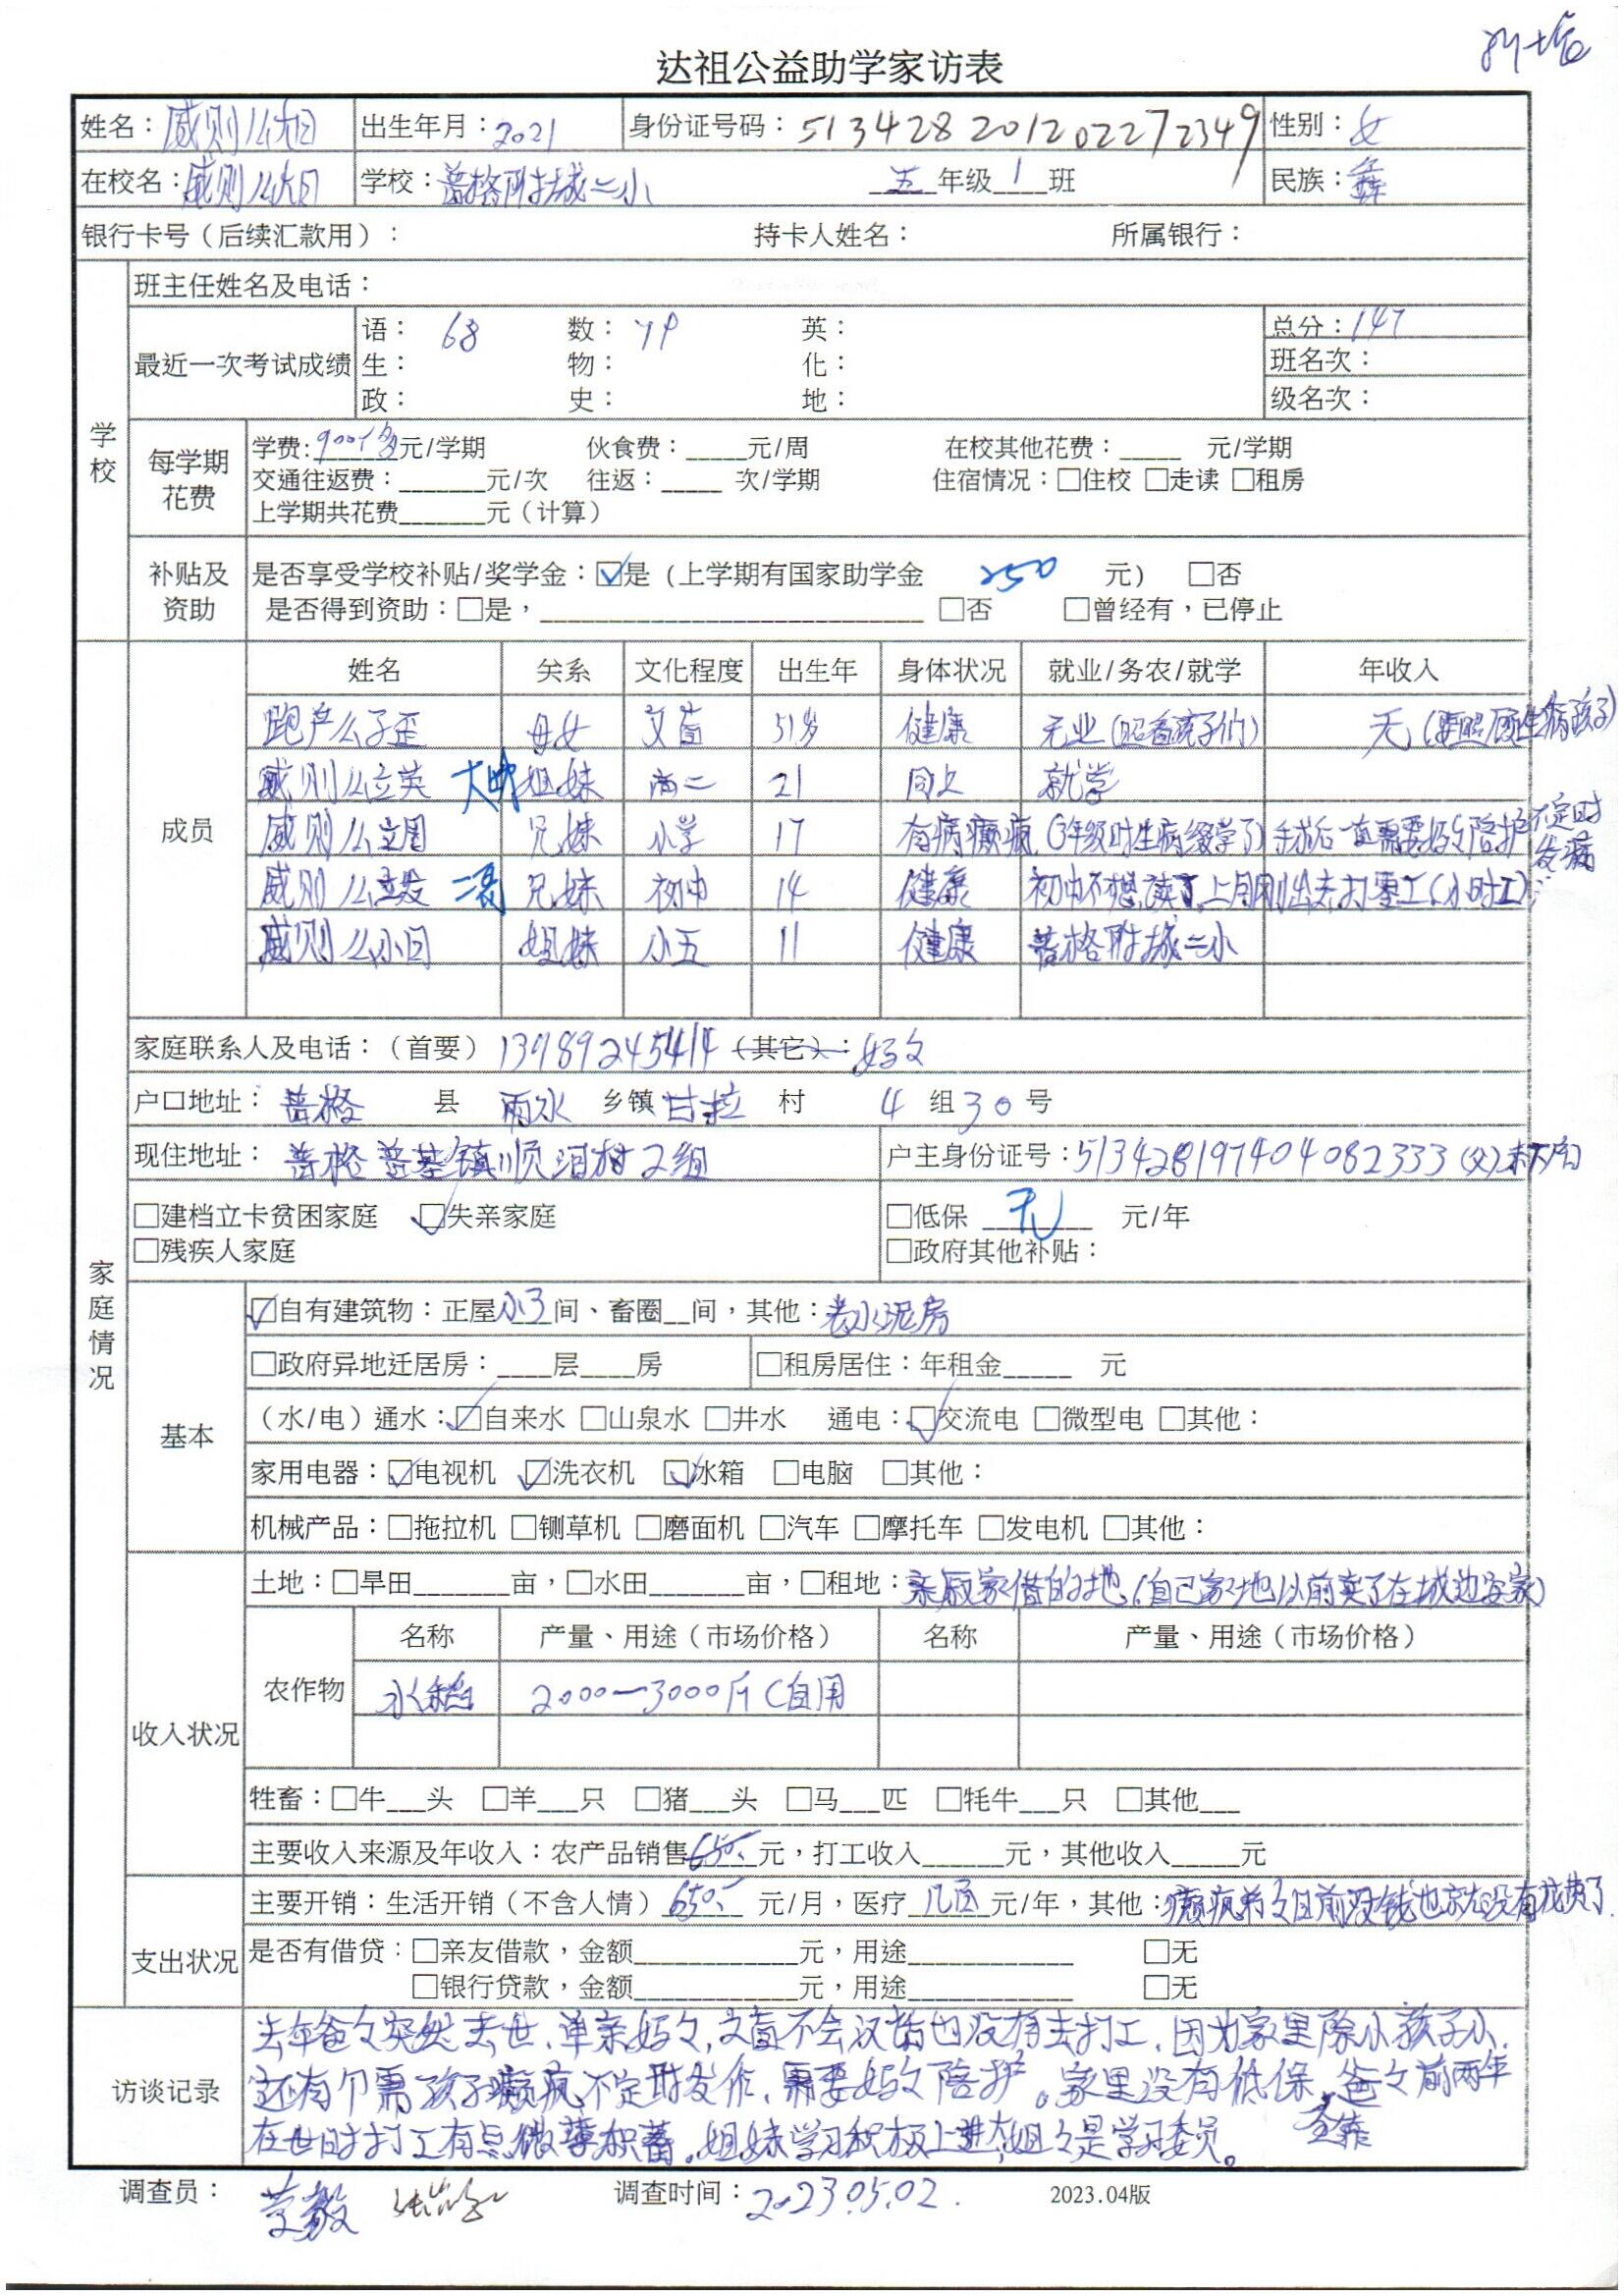 达祖公益助学家访表
姓名：威则么大日 出生年月：2021 身份证号码：513428201202272349 性别：女
在校名：威则么大日 学校：普格附城二小 五年级1班 民族：彝
银行卡号（后续汇款用）： 持卡人姓名： 所属银行：
学校
班主任姓名及电话：
最近一次考试成绩
语：68 数：79 英： 总分：147
生： 物： 化： 班名次：
政： 史： 地： 级名次：
每学期花费
学费：900多元/学期 伙食费：____元/周 在校其他花费：____ 元/学期
交通往返费：______元/次 往返：____ 次/学期 住宿情况：□住校 □走读 □租房
上学期共花费______元（计算）
补贴及资助
是否享受学校补贴/奖学金：☑是（上学期有国家助学金 250 元） □否
是否得到资助：□是，____________ □否 □曾经有，已停止
家庭情况
成员
姓名 关系 文化程度 出生年 身体状况 就业/务农/就学 年收入
跑产么子歪 母女 文盲 51岁 健康 无业（照看孩子们） 无（要照顾生病孩子）
威则么立英 大姐 姐妹 高二 21 同上 就学
威则么立国 兄妹 小学 17 有病癫疯（3年级时生病缀学了）手术后一直需要妈々陪护 不定时发病
威则么立发 二哥 兄妹 初中 14 健康 初中不想读了，上周刚出去打零工（小时工）
威则么小日 姐妹 小五 11 健康 普格附城二小
家庭联系人及电话：（首要）13989245414（其它）：妈々
户口地址：普格 县 雨水 乡镇 甘拉 村 4 组 30 号
现住地址：普格普基镇顺洎村2组 户主身份证号：513428197404082333（父）未下户
□建档立卡贫困家庭 ☑失亲家庭 □低保 无 元/年
□残疾人家庭 □政府其他补贴：
基本
☑自有建筑物：正屋小3间、畜圈__间，其他：老水泥房
□政府异地迁居房：____层____房 □租房居住：年租金_____ 元
（水/电）通水：☑自来水 □山泉水 □井水 通电：☑交流电 □微型电 □其他：
家用电器：☑电视机 ☑洗衣机 ☑冰箱 □电脑 □其他：
机械产品：□拖拉机 □铡草机 □磨面机 □汽车 □摩托车 □发电机 □其他：
收入状况
土地：□旱田______亩，□水田______亩，□租地：亲戚家借的地（自己家地以前卖了在城边安家）
农作物
名称 产量、用途（市场价格） 名称 产量、用途（市场价格）
水稻 2000—3000斤（自用
牲畜：□牛___头 □羊___只 □猪___头 □马___匹 □牦牛___只 □其他___
主要收入来源及年收入：农产品销售650元，打工收入______元，其他收入_____元
支出状况
主要开销：生活开销（不含人情）650 元/月，医疗 几百元/年，其他：癫疯前々目前没钱也就没有花费了
是否有借贷：□亲友借款，金额____________元，用途____________ □无
□银行贷款，金额____________元，用途____________ □无
访谈记录
去年爸々突然去世，单亲妈々，文盲不会汉话也没有去打工，因为家里除小孩子小，
还有个需孩子癫疯不定时发作，需要妈々陪护。家里没有低保，爸々前两年
在世时打工有点微薄积蓄。姐妹学习积极上进，大姐々是学习委员。
调查员： 调查时间：2023.05.02. 2023.04版